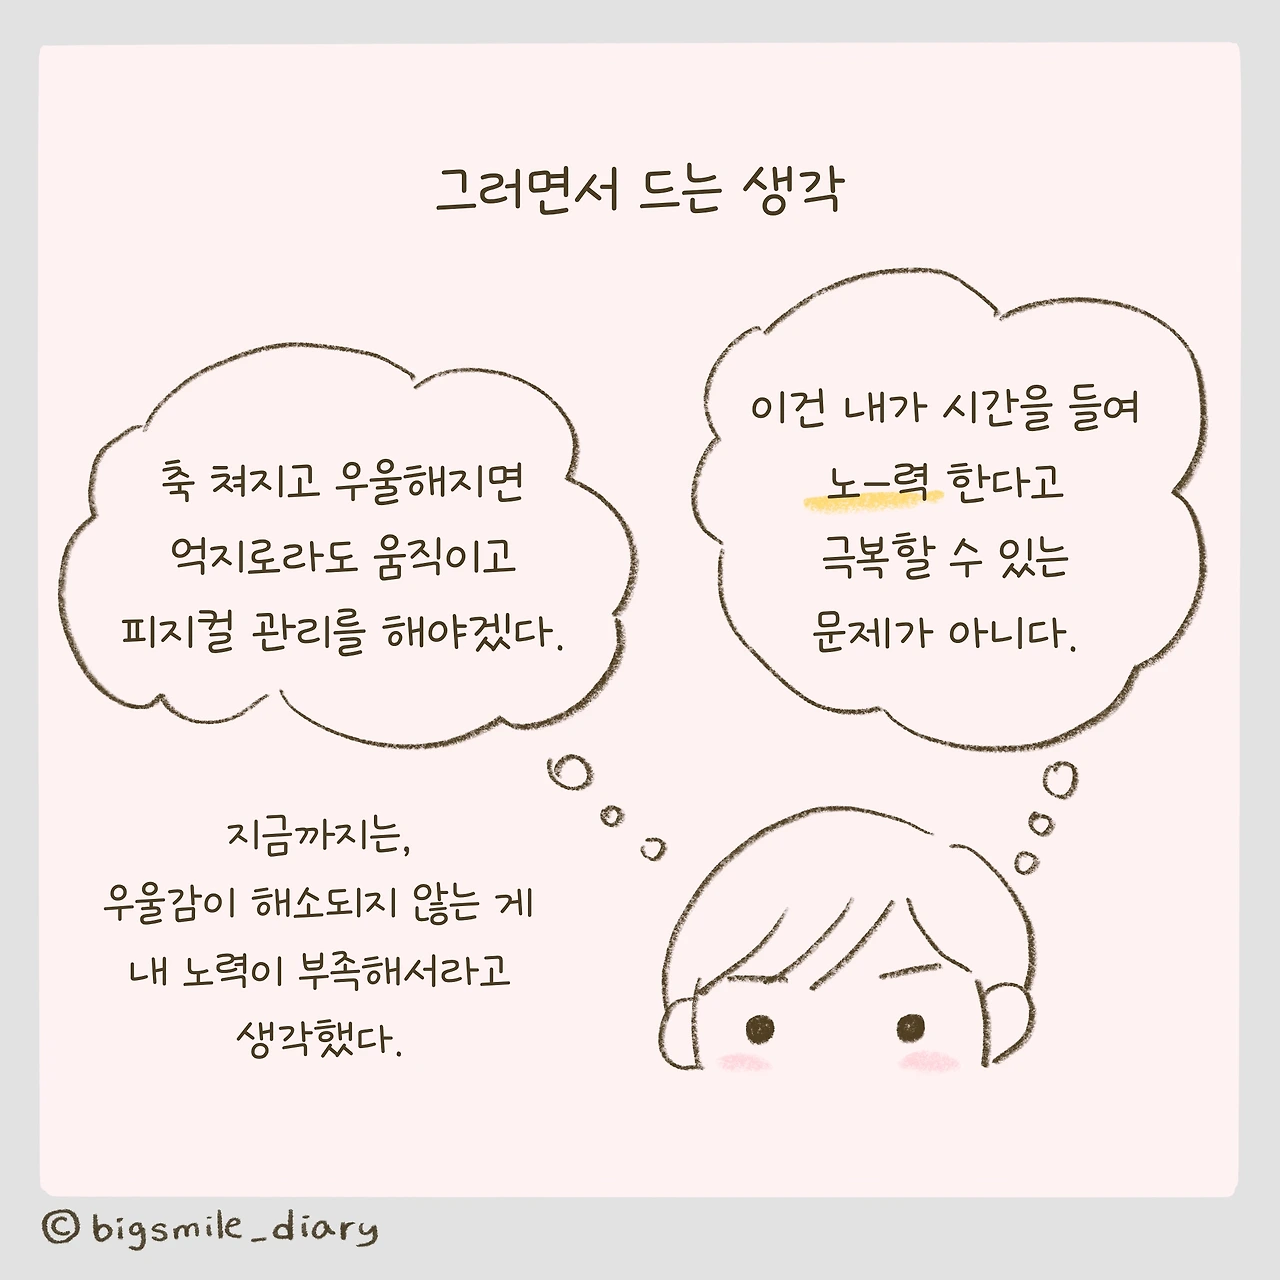 그러면서 드는 생각
축 쳐지고 우울해지면
억지로라도 움직이고
피지컬 관리를 해야겠다.
이건 내가 시간을 들여
노-력 한다고
극복할 수 있는
문제가 아니다.
지금까지는,
우울감이 해소되지 않는 게
내 노력이 부족해서라고
생각했다.
© bigsmile_diary